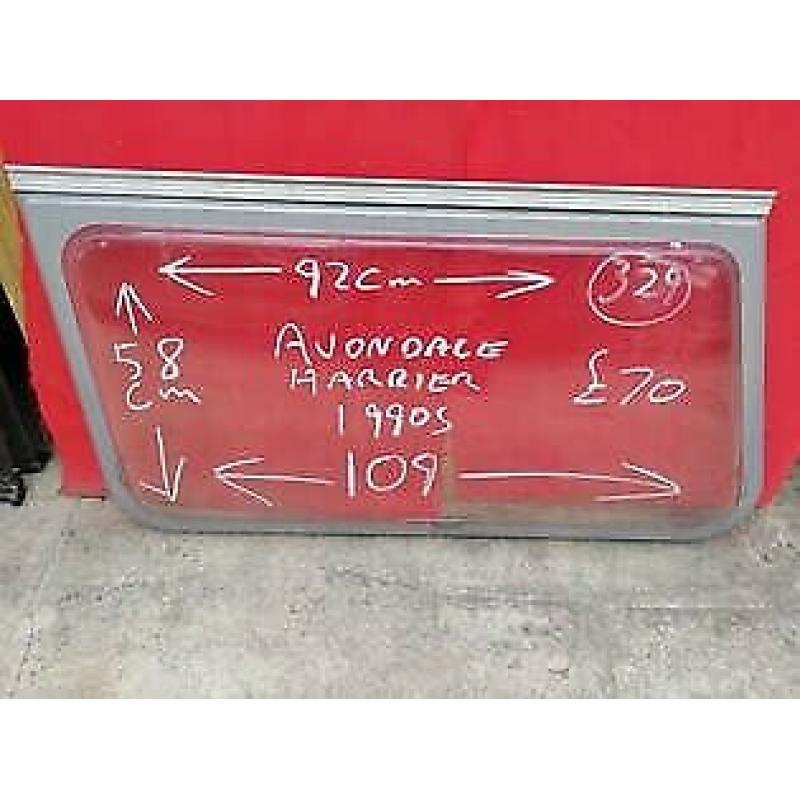 92cm
329
58
cm
AVONDALE
HARRIER
1990S
£70
109